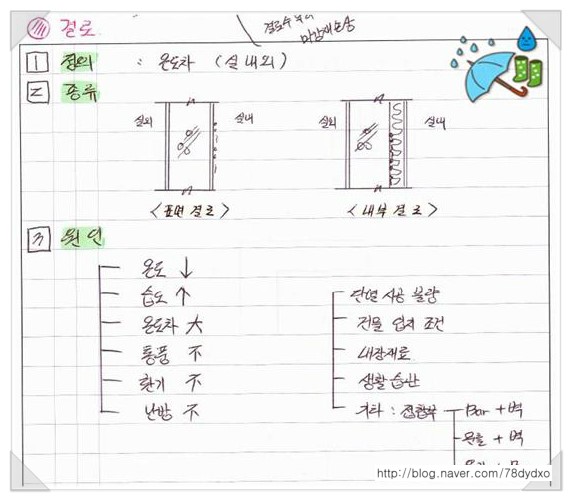 결로
결로수 부식
마감재손상
1 정의 : 온도차 (실내외)
2 종류
실외 실내 실외 실내
<표면 결로> <내부 결로>
3 원인
온도 ↓
습도 ↑
온도차 大
통풍 不
환기 不
난방 不
단열 시공 불량
건물 입지 조건
내장재료
생활 습관
기타 : 접합부 Bar + 벽
문틀 + 벽
http://blog.naver.com/78dydxo